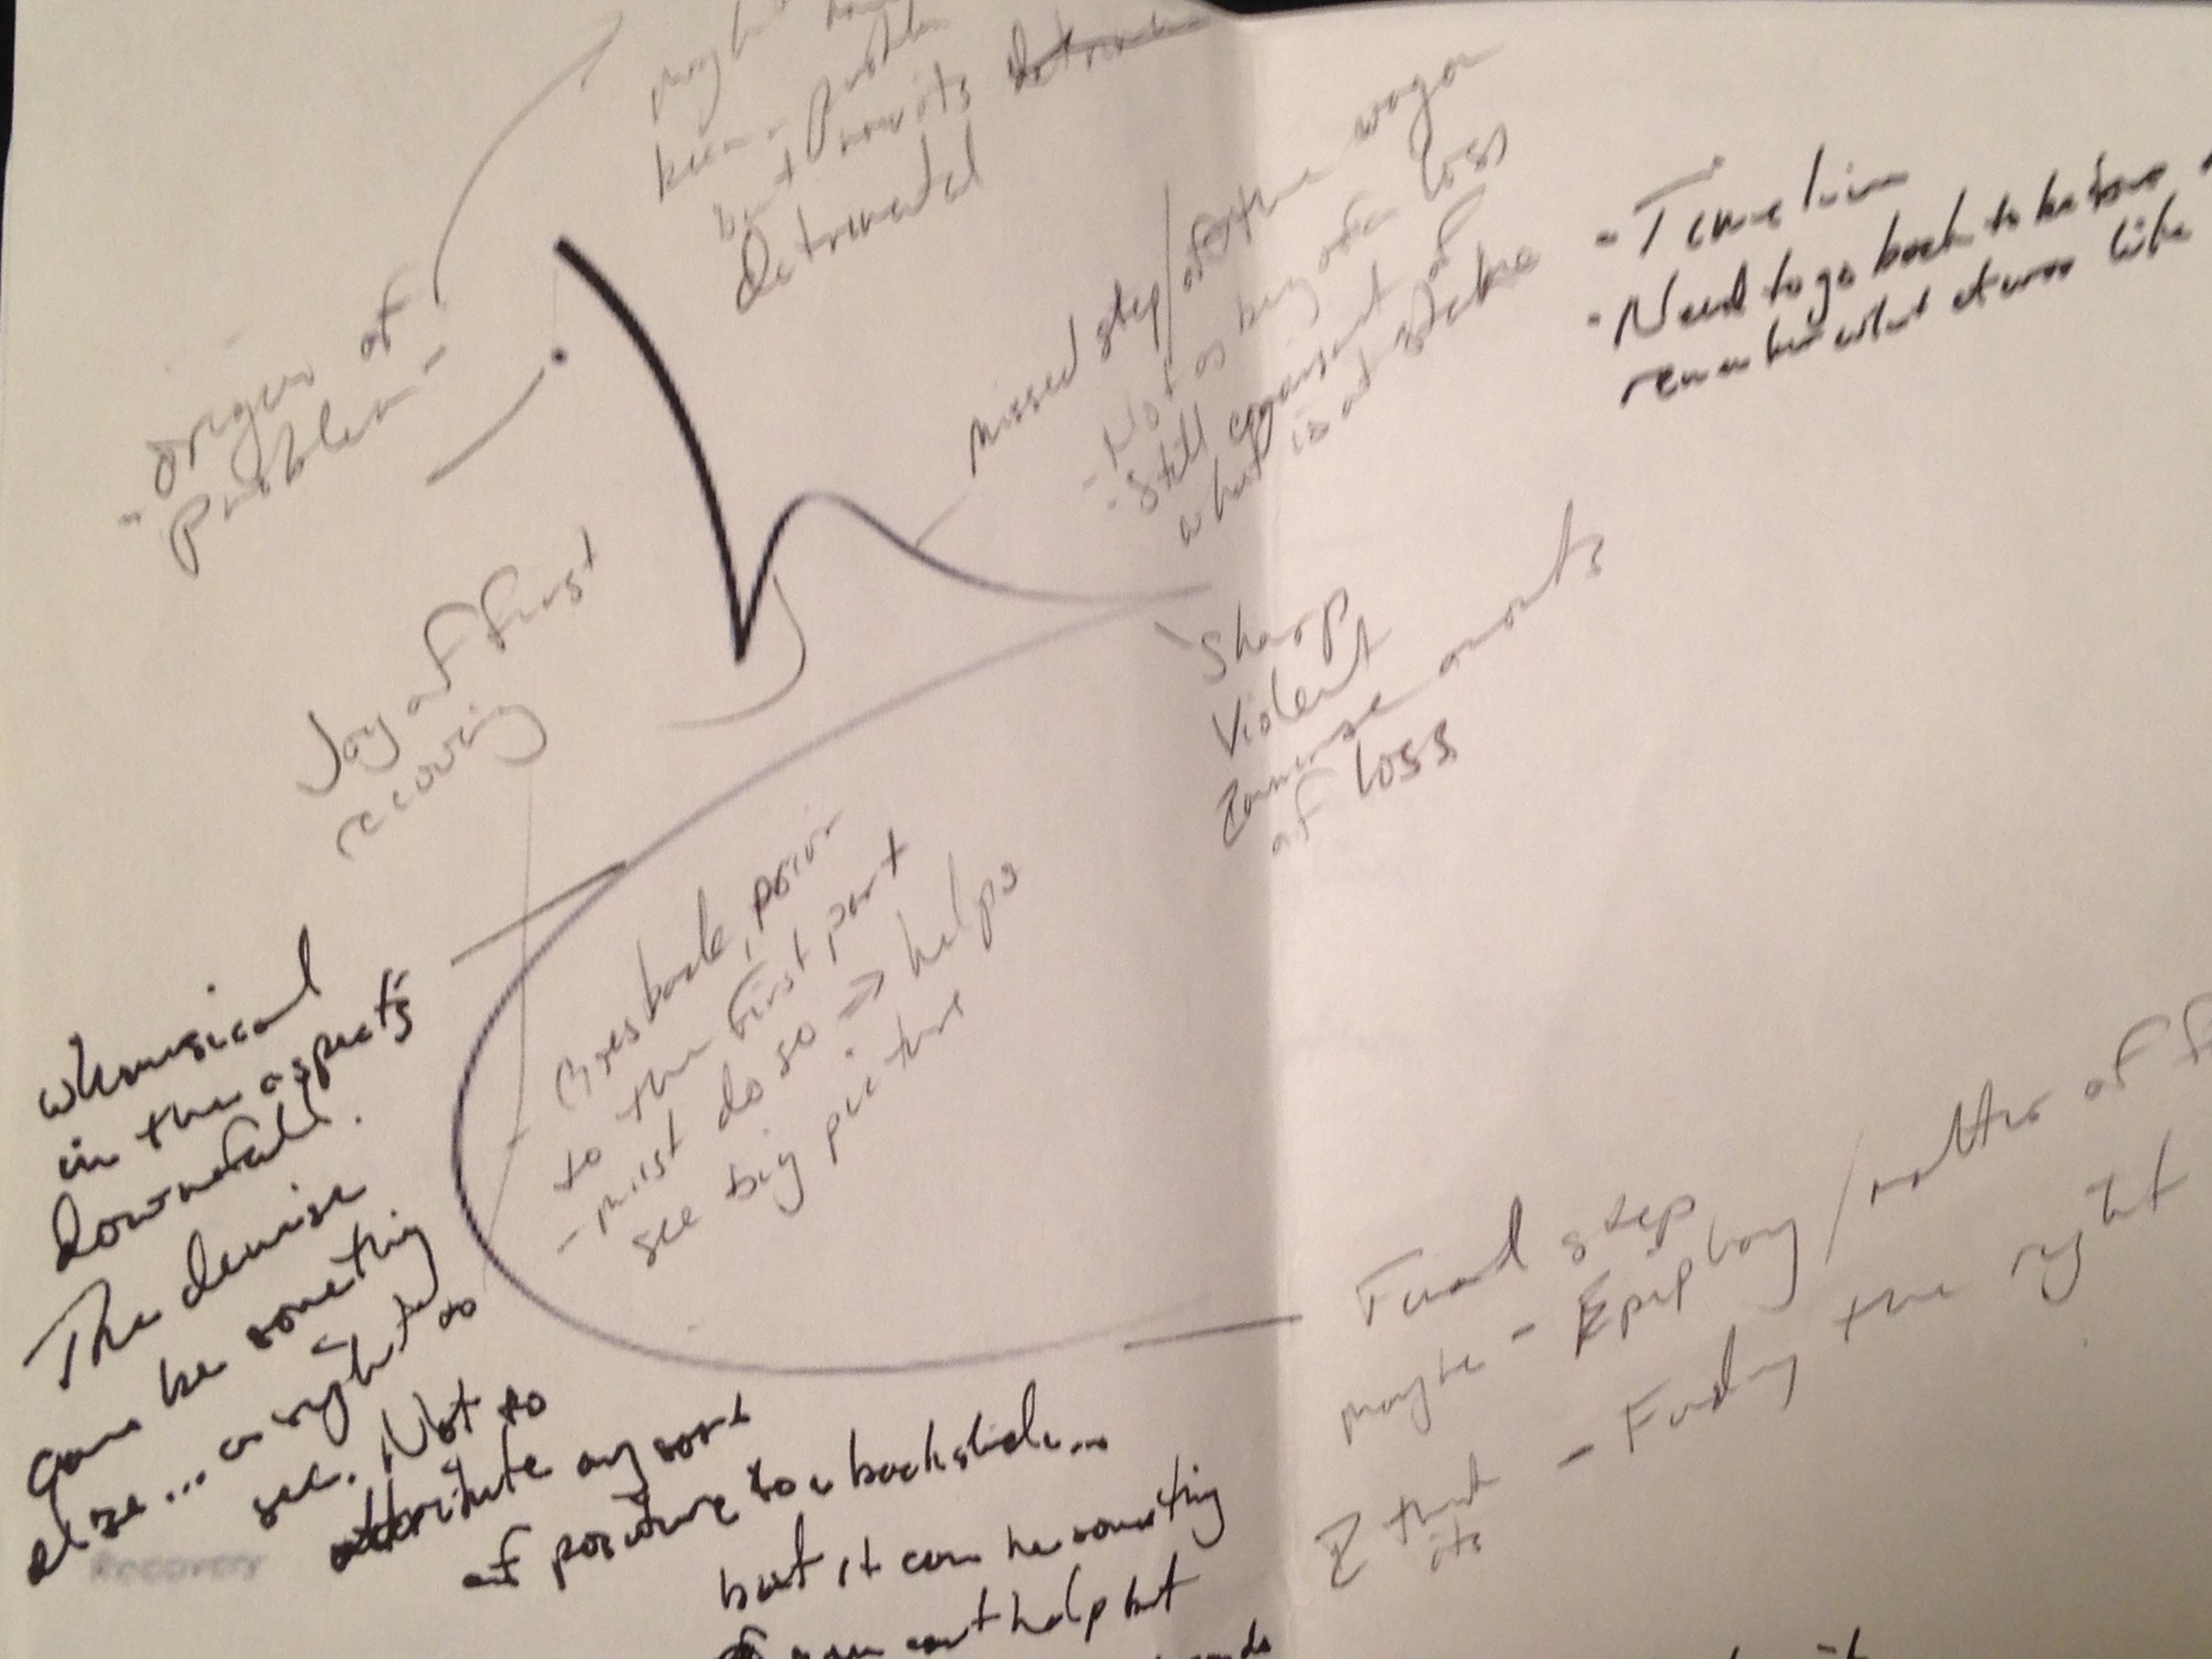 been a problem
but now its
Detrimental
- origins of
problem -
missed step/off the wagon
- Not as big of a loss
- Still cognisant of
what is at stake
- Time line
- Need to go back to before
remember what it was like
Joy of first
recoving
Sharp
Violent
amounts
of loss
- Goes back, prior
to the first part
- must do so → helps
see big picture
whimsical
in the aspects
downfall.
The demise
can be something
else... a sight to
see. Not to
attribute any sort
of positive to a backslide...
but it can be something
you can't help but
Recovery
Final step
maybe - Epiphany/matter of
I think - Finding the right
its